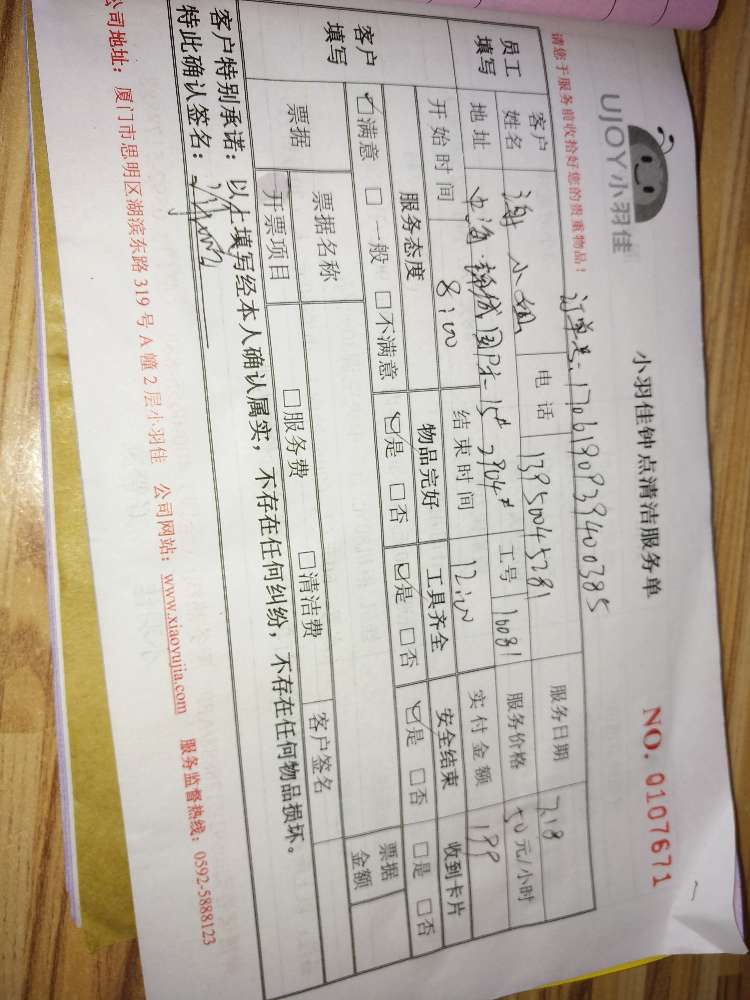 UJOY小羽佳
小羽佳钟点清洁服务单
NO. 0107671
请您于服务前收拾好您的贵重物品！
订单号:1706190939400385
员工填写 客户姓名 谢小姐 电话 13950045281 服务日期 7.18
地址 中海·锦城国际-15# 2904# 工号 10081 服务价格 50元/小时
开始时间 8:00 结束时间 12:00 实付金额 199
客户填写 服务态度 物品完好 工具齐全 安全结束 收到卡片
☑满意 □一般 □不满意 ☑是 □否 ☑是 □否 ☑是 □否 □是 □否
票据 票据名称 客户签名 票据金额
开票项目 □服务费 □清洁费
客户特别承诺：以上填写经本人确认属实，不存在任何纠纷，不存在任何物品损坏。
特此确认签名：
公司地址：厦门市思明区湖滨东路319号A幢2层小羽佳 公司网站：www.xiaoyujia.com 服务监督热线：0592-5888123